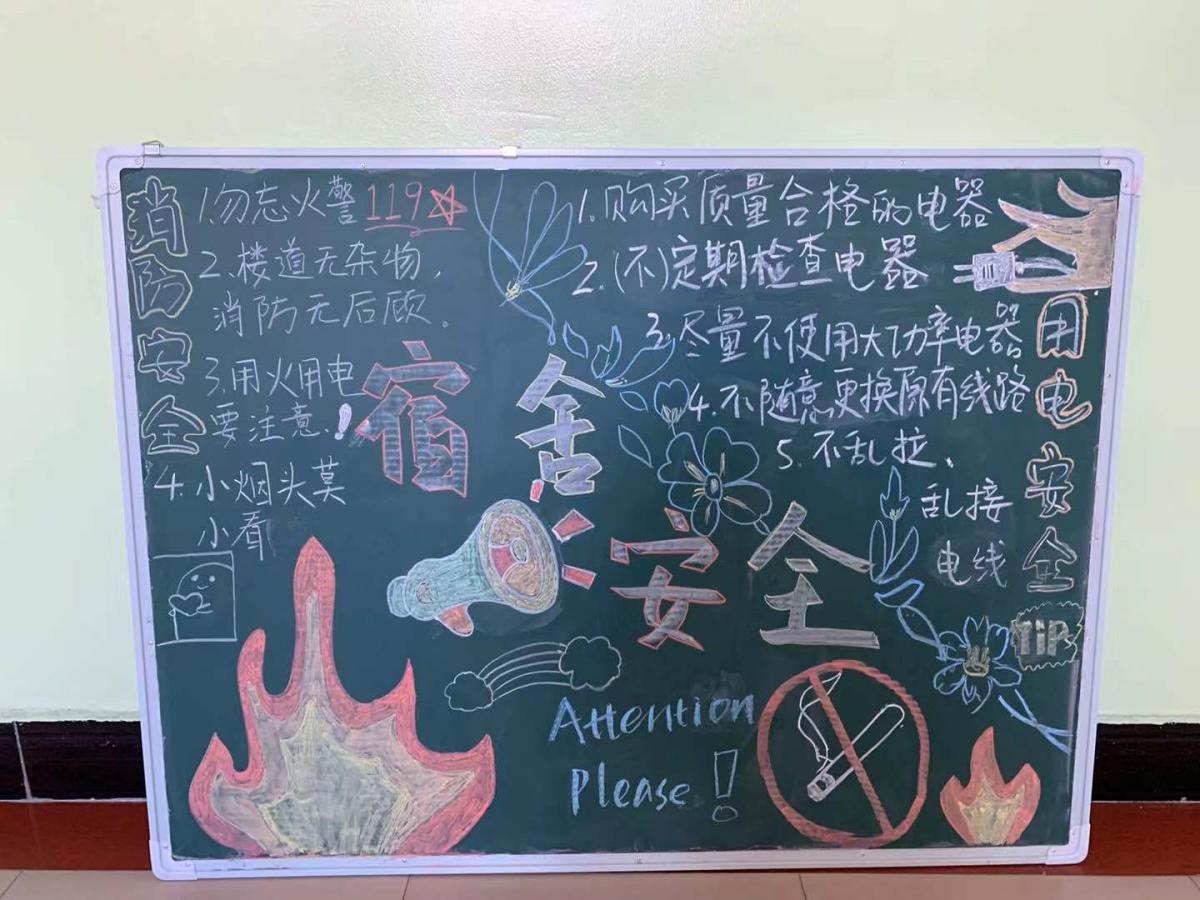 消防安全
1.勿忘火警119
2.楼道无杂物,
消防无后顾。
3.用火用电
要注意、!
4.小烟头莫
小看
宿舍
安全
1.购买质量合格的电器
2.(不)定期检查电器
3.尽量不使用大功率电器
4.不随意更换原有线路
5.不乱拉、
乱接
电线
用电安全
TiP
Attention
Please!